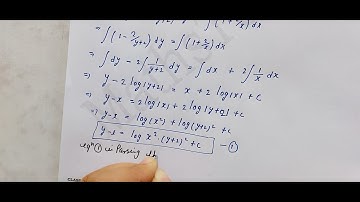 ∫(1 - 2/(y+2)) dy = ∫(1 + 2/x) dx
⇒ ∫dy - 2∫ 1/(y+2) dy = ∫dx + 2∫ 1/x dx
⇒ y - 2 log|y+2| = x + 2 log|x| + c
⇒ y - x = 2 log|x| + 2 log|y+2| + c
⇒ y - x = log(x²) + log(y+2)² + c
⇒ y - x = log x²·(y+2)² + c —①
eqⁿ ① is Passing th